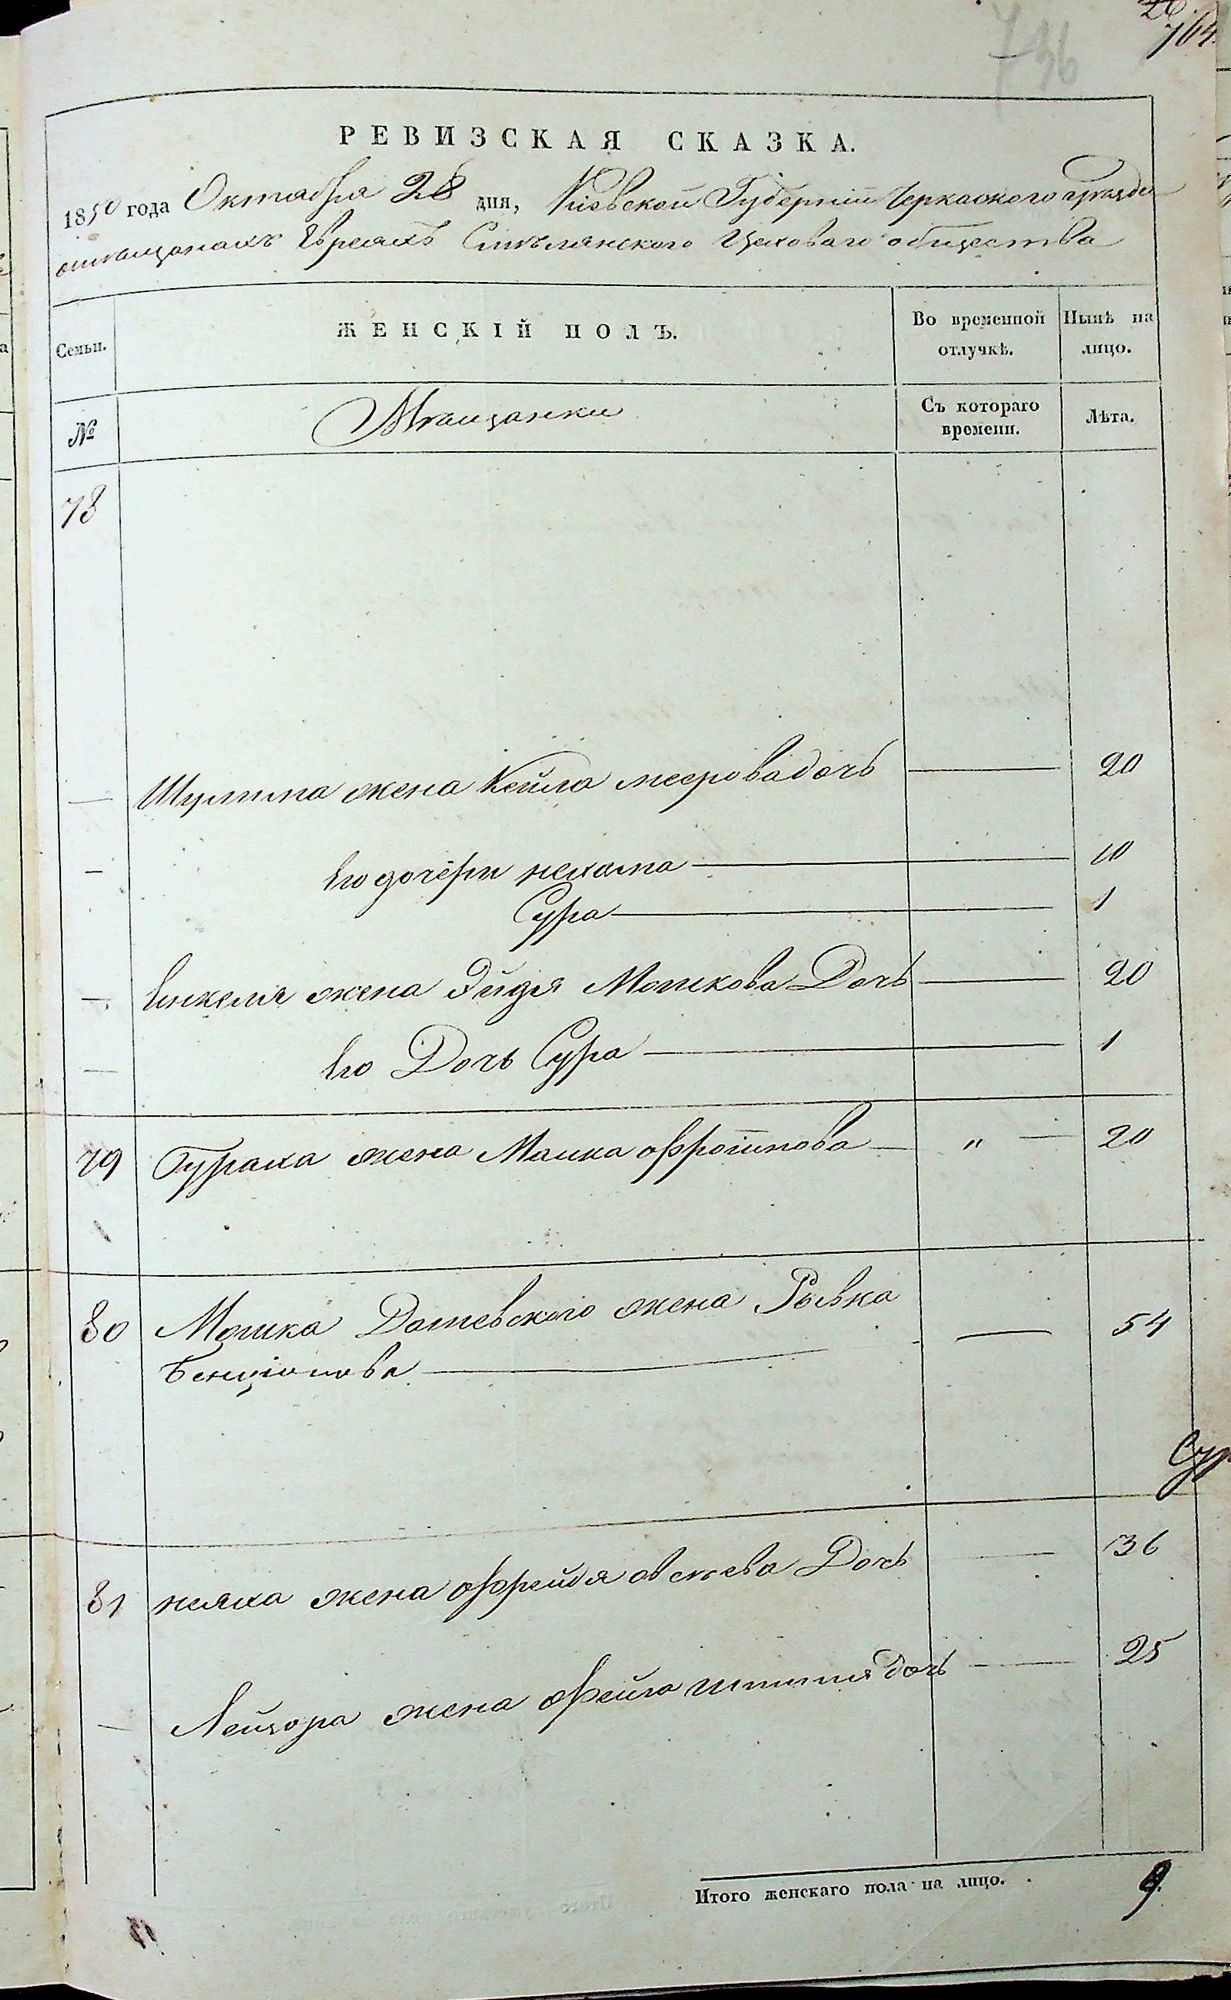 736
764
РЕВИЗСКАЯ СКАЗКА.
1850 года Октября 28 дня, Киевской Губернии Черкаского уезда
о мещанахъ Евреяхъ Смелянского Цеховаго общества
Семьи.
ЖЕНСКІЙ ПОЛЪ.
Во временной отлучкѣ.
Нынѣ на лицо.
№
Мещанки
Съ котораго времени.
Лѣта.
78
— Шулима жена Кейла Меерова дочь — 20
— Его дочери Нехама — 10
Сура — 1
— Янкеля жена Эйдля Мошкова Дочь — 20
— Его Дочь Сура — 1
79 жена Малка Офроимова — " — 20
80 Мошка Дашевского жена Рывка — 54
Бенционова —
Сур
81 жена Фрейда Дочь — 36
— Лейзора жена Фейга дочь — 25
Итого женскаго пола на лицо. 9.